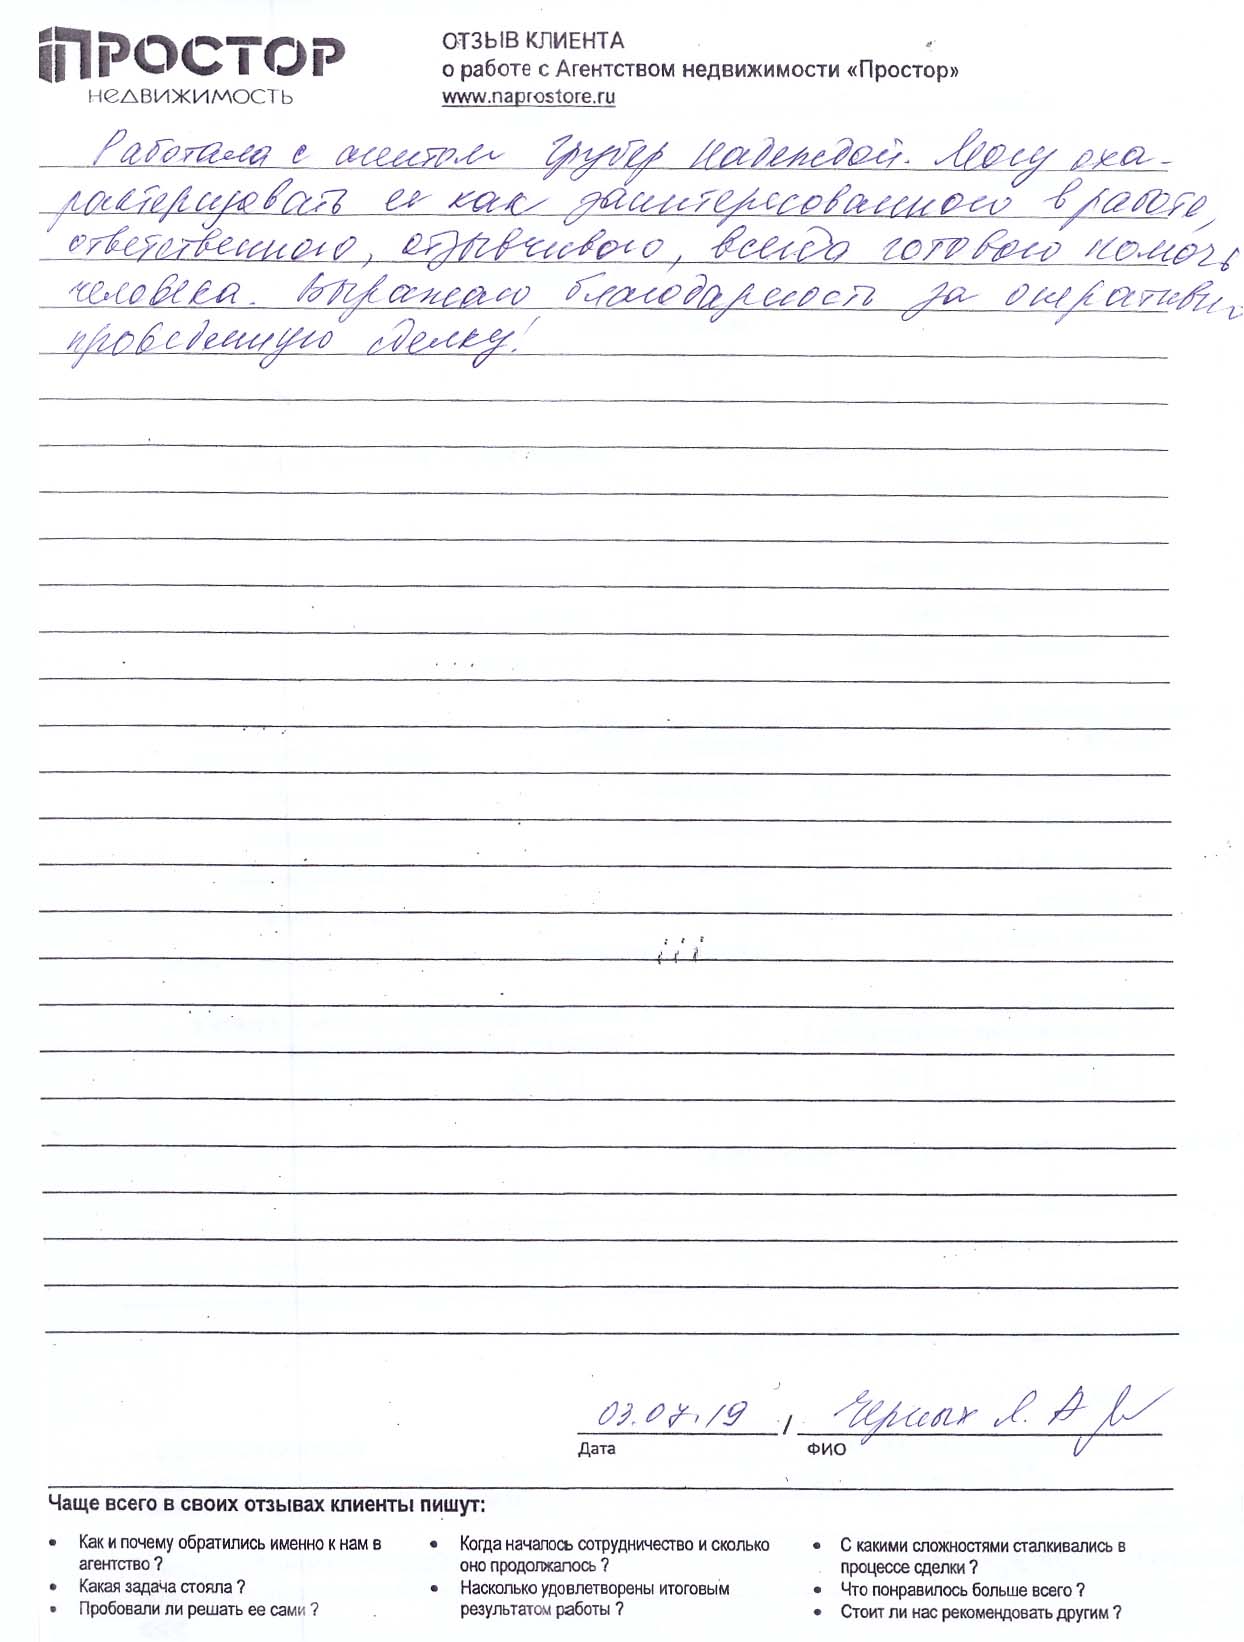 ПРОСТОР
НЕДВИЖИМОСТЬ
ОТЗЫВ КЛИЕНТА
о работе с Агентством недвижимости «Простор»
www.naprostore.ru
Работала с агентом Грубер Надеждой. Могу оха-
рактеризовать ее как заинтересованного в работе,
ответственного, отзывчивого, всегда готового помочь
человека. Выражаю благодарность за оперативно
проведенную сделку!
03.07.19 / Черных Л. А.
Дата ФИО
Чаще всего в своих отзывах клиенты пишут:
• Как и почему обратились именно к нам в
агентство ?
• Какая задача стояла ?
• Пробовали ли решать ее сами ?
• Когда началось сотрудничество и сколько
оно продолжалось ?
• Насколько удовлетворены итоговым
результатом работы ?
• С какими сложностями сталкивались в
процессе сделки ?
• Что понравилось больше всего ?
• Стоит ли нас рекомендовать другим ?